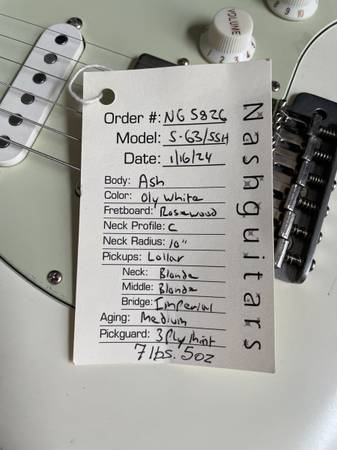 VOLUME
Order #: NG 5826
Model: S-63/SSH
Date: 1/16/24
Body: Ash
Color: Oly White
Fretboard: Rosewood
Neck Profile: C
Neck Radius: 10"
Pickups: Lollar
Neck: Blonde
Middle: Blonde
Bridge: Imperial
Aging: Medium
Pickguard: 3 Ply Mint
7 lbs. 5oz
Nashguitars